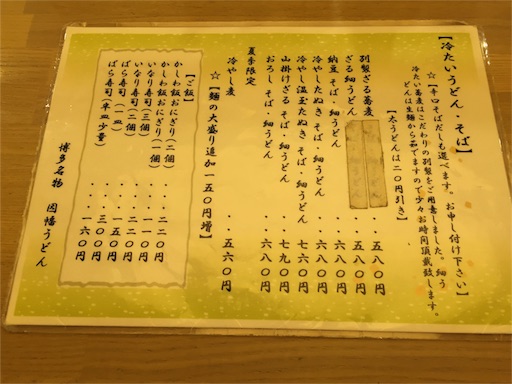 【冷たいうどん・そば】
☆【辛口そばだしも選べます。お申し付け下さい】
冷たい蕎麦はこだわりの別製をご用意しました。細う
どんは生麺から茹でますので少々お時間頂戴致します。
【太うどんは二〇円引き】
別製ざる蕎麦・・五八〇円
ざる細うどん・・五八〇円
納豆 そば・細うどん・・六八〇円
冷やしたぬき そば・細うどん・・六八〇円
冷やし温玉たぬき そば・細うどん・六八〇円
山掛けざる そば・細うどん・・七九〇円
おろし そば・細うどん・・六八〇円
夏季限定
冷やし麦・・五六〇円
☆【麺の大盛り追加一五〇円増】
【ご飯】
かしわ飯おにぎり(二個)・・二二〇円
かしわ飯おにぎり(一個)・・一一〇円
いなり寿司(三個)・・・二二〇円
いなり寿司(二個)・・・一五〇円
ばら寿司(一皿)・・・三〇〇円
ばら寿司(半皿少量)・・一六〇円
博多名物 因幡うどん